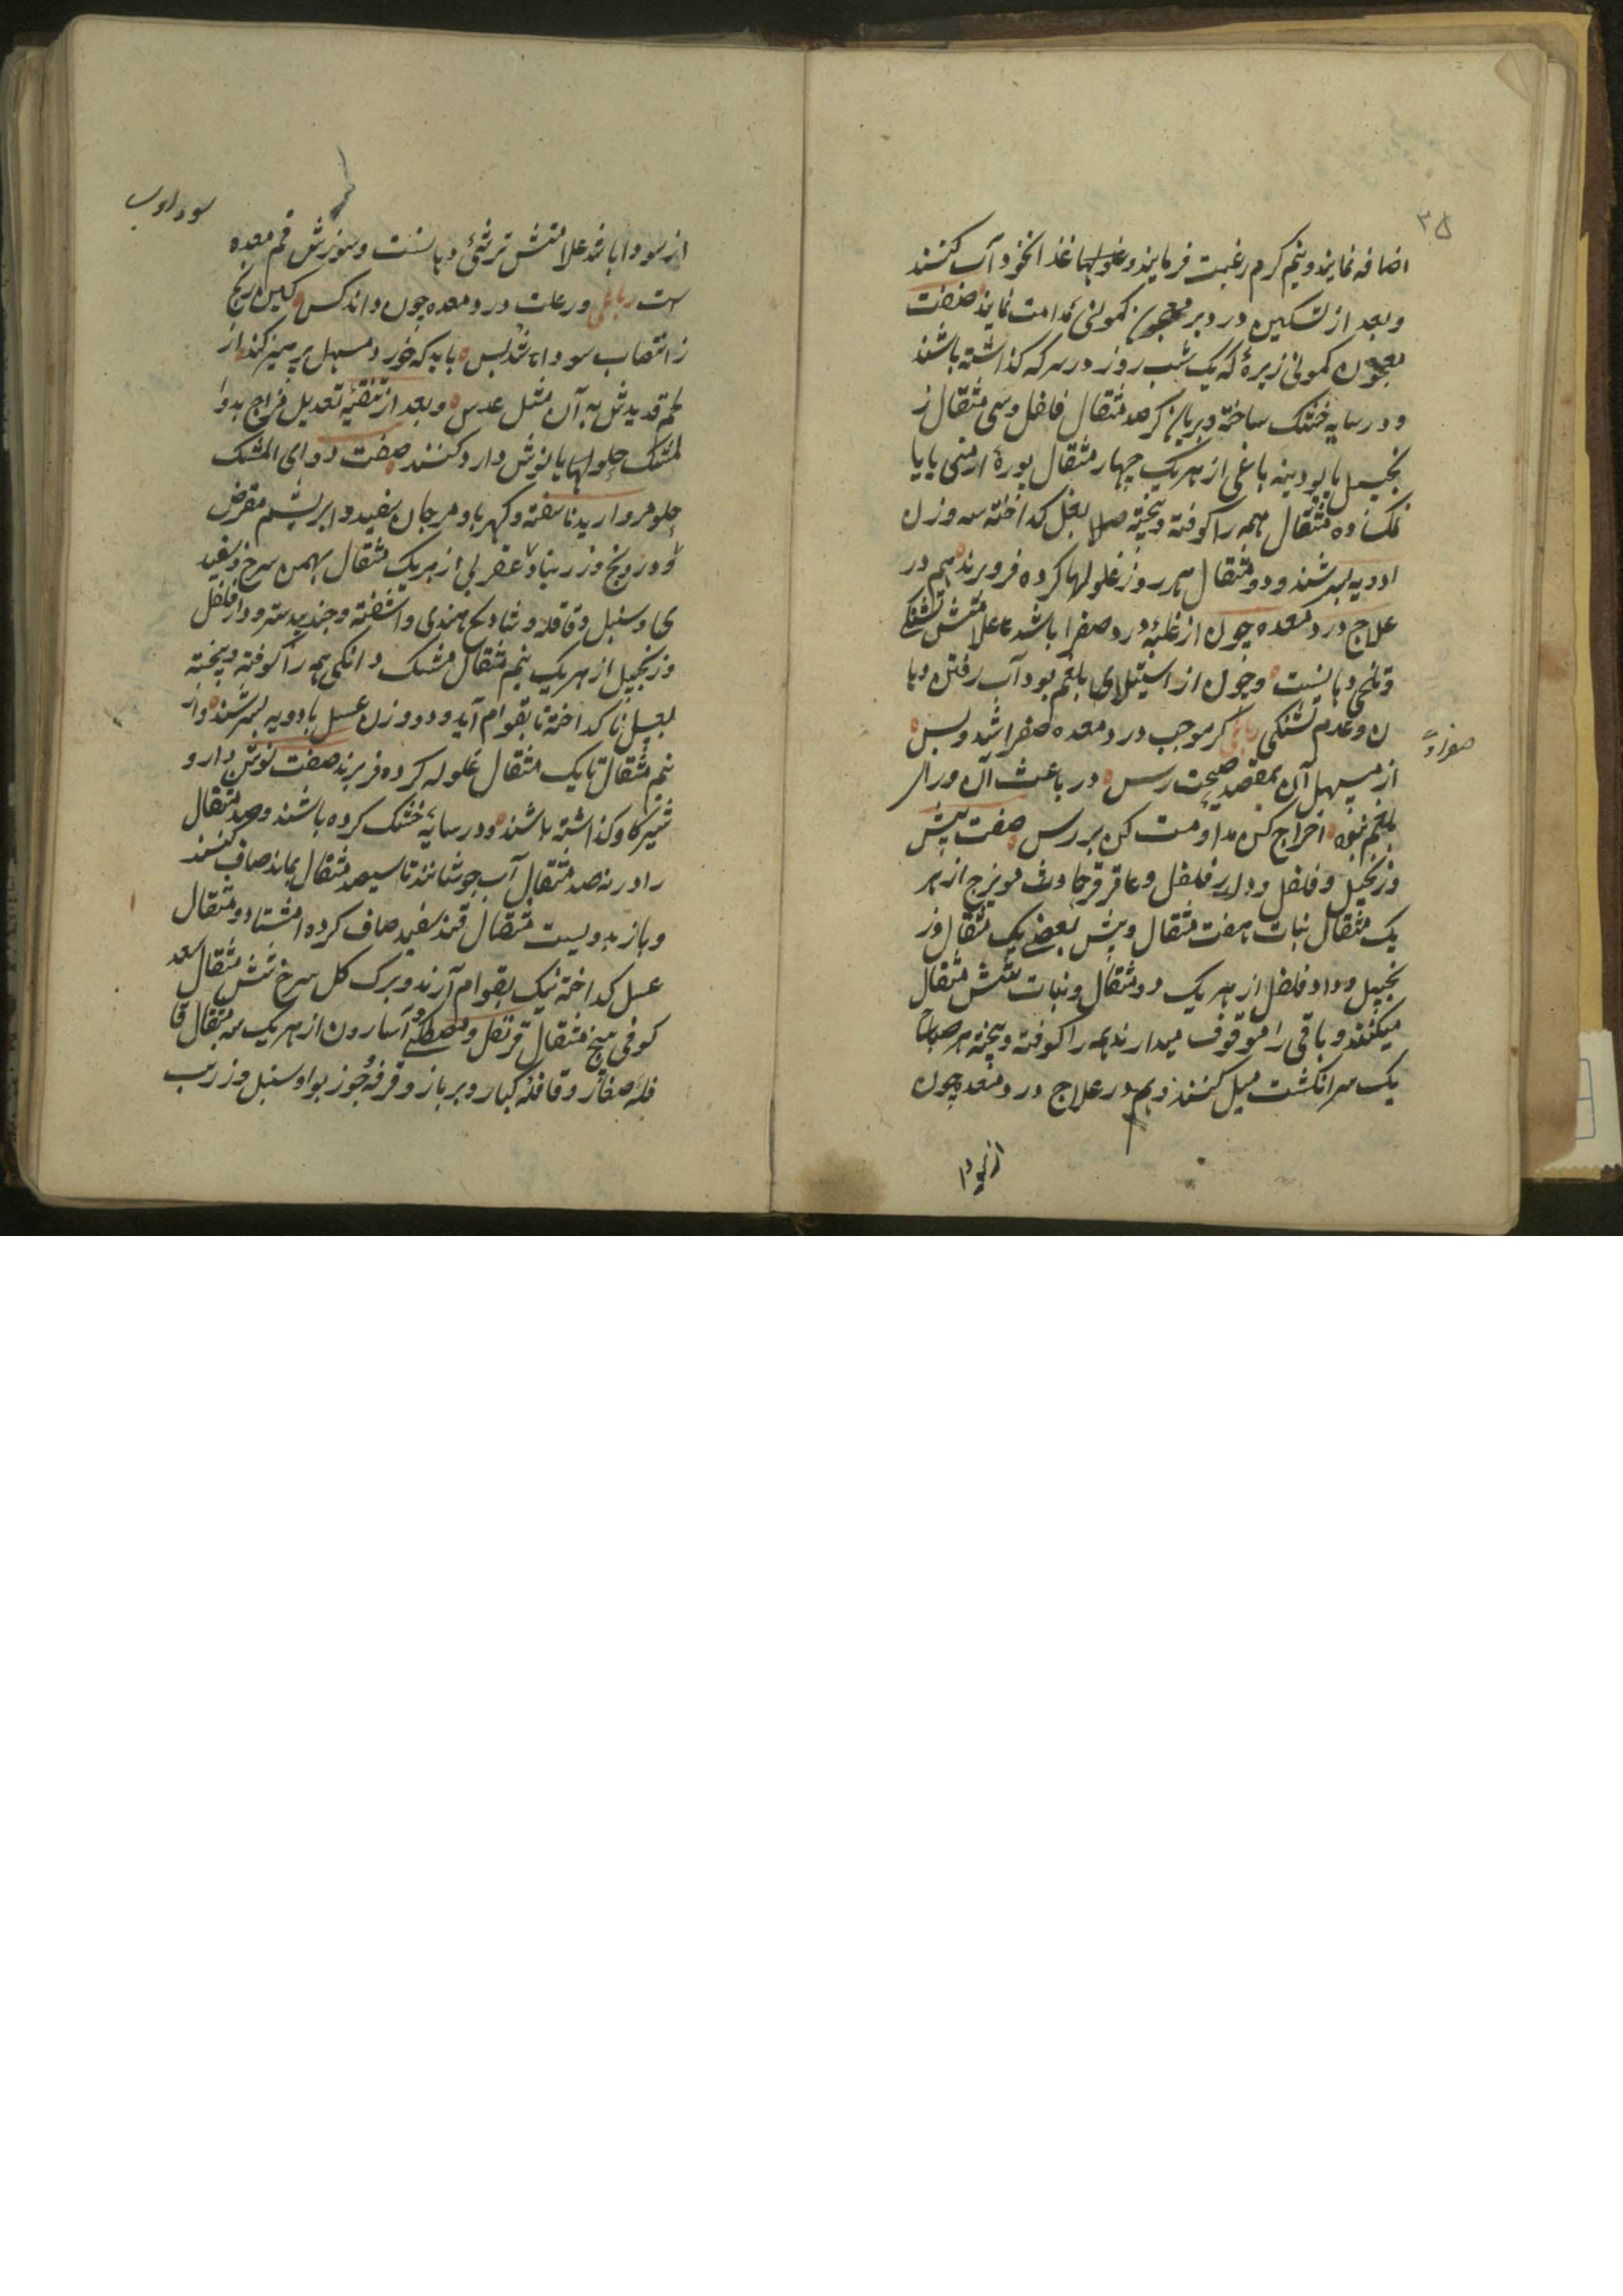 ۳۵
اضافه نمایند و نیم کرم رغبت فرمایند و غذا نخود آب کنند
و بعد از تسکین درد بر معجون کمونی مداومت نمایند صفت
معجون کمونی زیرهٔ که یک شب روز در سرکه گذاشته باشند
و در سایه خشک ساخته و بریان کرده صد مثقال فلفل و سی مثقال ز
نجبیل با پودینه باغی از هر یک چهار مثقال بورهٔ ارمنی یا با
نمک ده مثقال همه را کوفته و بیخته بعسل کداخته سه وزن
ادویه بسرشند و دو مثقال هر روز غلولها کرده فرو برند هم در
علاج درد معده چون از غلبهٔ درد صفرا باشد علامتش تشنکی
و تلخی دهانست و چون از استیلای بلغم بود آب رفتن دها
ن و عدم تشنکی رباعی کر موجب درد معده صفرا شد و بس
از مسهل آن بمقصد صحت رس در باعث آن ورای
بلغم نبود اخراج کن مداومت کن بررس صفت
و زنجبیل و فلفل و دار فلفل و عاقرقرحا و مویزج از هر
یک مثقال نبات هفت مثقال و بعضی یک مثقال وز
نجبیل و دار فلفل از هر یک دو مثقال و نبات شش مثقال
میکنند و باقی را موقوف میدارند همه را کوفته و بیخته هر صباح
یک سر انکشت میل کنند و هم در علاج درد معده چون
از سودا
سوداوی
از سودا باشد علامتش ترشیٔ دهانست و سوزش فم معده
ست رباعی در علت درد معده چون داند کس کین رنج
ز انتصاب سودا باشد بس باید که خورد مسهل و پرهیز کند از
لحم قدید مثل به آن مثل عدس و بعد از تنقیه تعدیل مزاج بدوا
لمشک حلو لها یا نوش دارو کنند صفت دوای المشک
حلو مروارید ناسفته و کهربا و مرجان سفید و ابریشم مقرض
و درونج و زرنباد عقربی از هر یک مثقال بهمن سرخ و سفید
و سنبل و قاقله و هندی و اشنه و جندبیدستر و دار فلفل
و زنجبیل از هر یک نیم مثقال مشک دانکی همه را کوفته و بیخته
بعسل کداخته تا بقوام آید و دو وزن عسل با ادویه بسرشند و از
نیم مثقال تا یک مثقال غلوله کرده فرو برند صفت نوش دارو
شیر کاو گذاشته باشند و در سایه خشک کرده باشند و صد مثقال
را در نه صد مثقال آب جوشانند تا سیصد مثقال بماند صاف کنند
و باز بدویست مثقال قند سفید صاف کرده و مثقال
عسل کداخته نیک بقوام آرند و برک کل سرخ شش مثقال سعد
کوفی پنج مثقال قرنفل و مصطکی و آسارون از هر یک سه مثقال قا
قلهٔ صغار و قاقلهٔ کبار و بزباز و قرفه جوز بوا و سنبل و زرنب